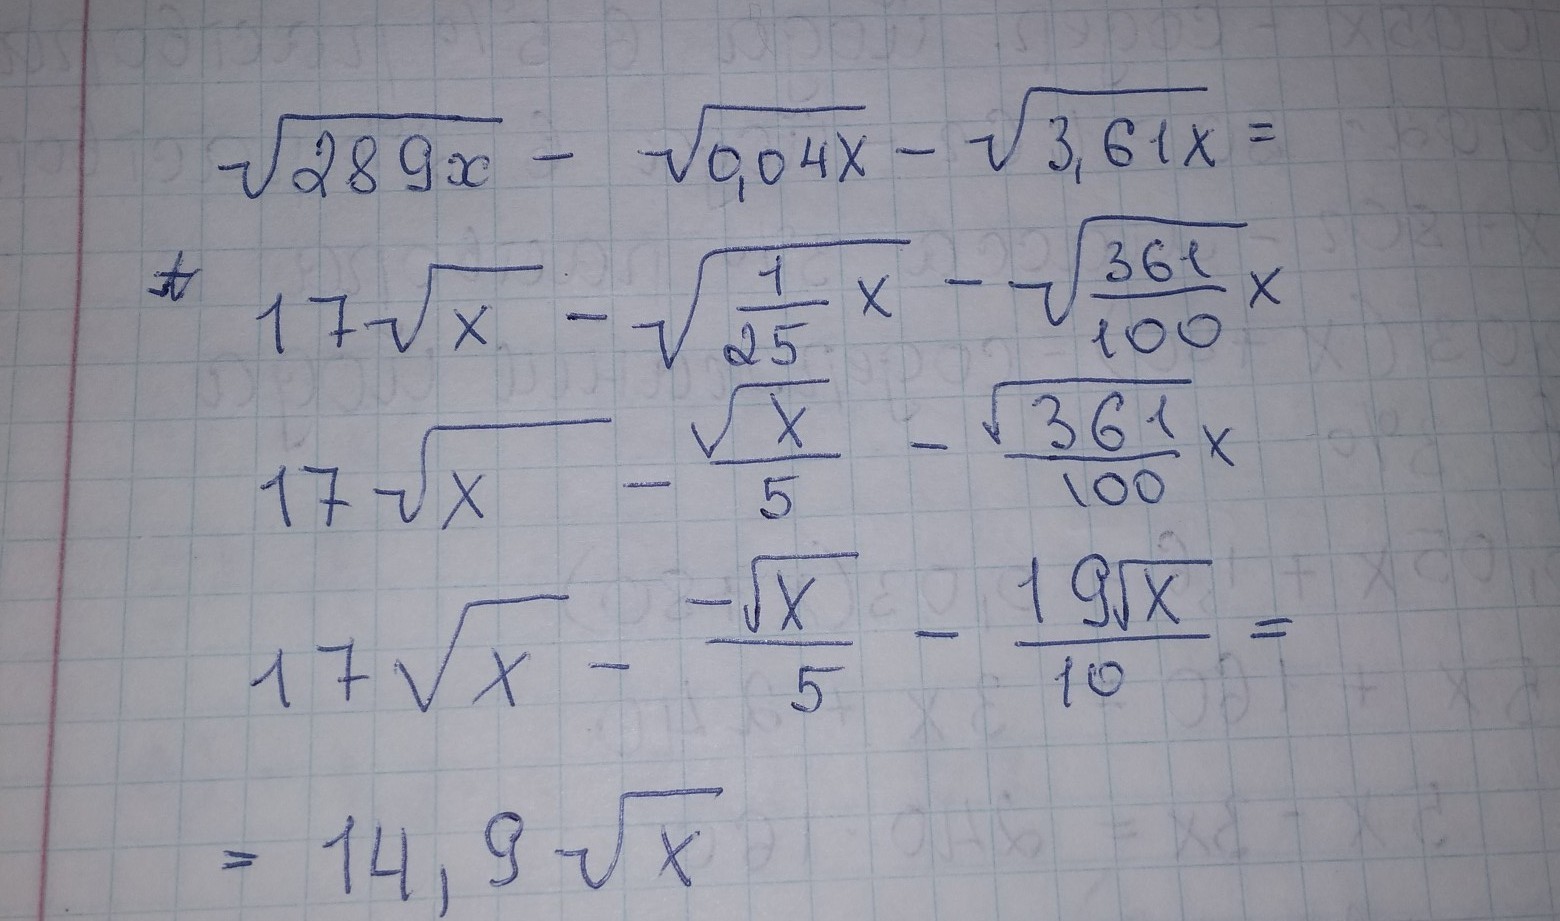 √289x - √0,04x - √3,61x =
17√x - √1/25 x - √361/100 x
17√x - √x/5 - √361/100 x
17√x - -√x/5 - 19√x/10 =
= 14,9√x